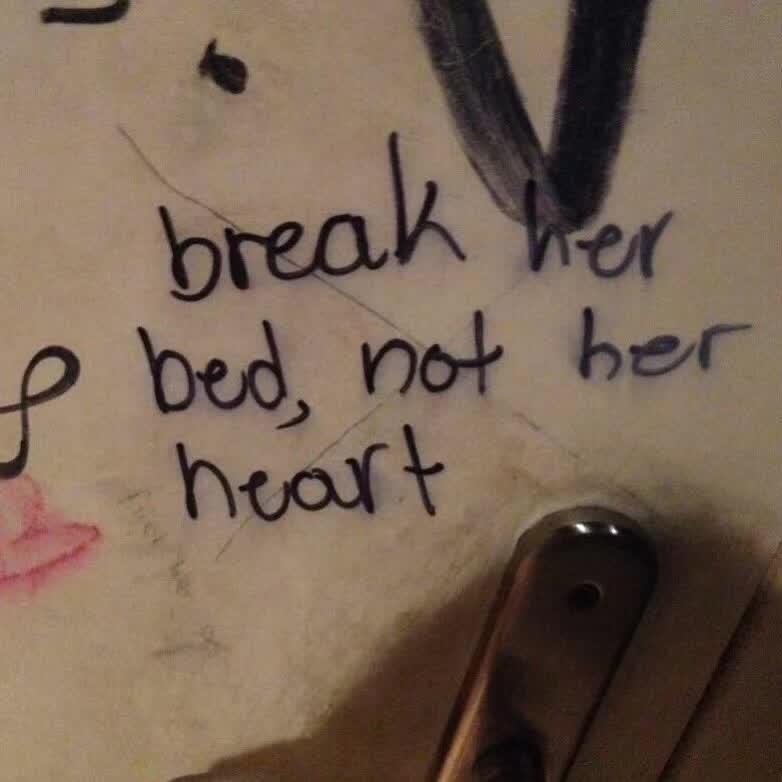 break her
bed, not her
heart